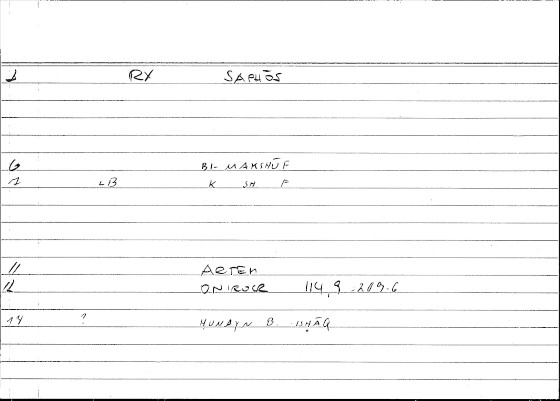 1 RX SAPHŌS
6 BI- MAKSHŪF
7 LB K SH F
11 ARTEM
12 ONIROCR 114,9-209.6
14 ? HUNAYN B. ISḤĀQ